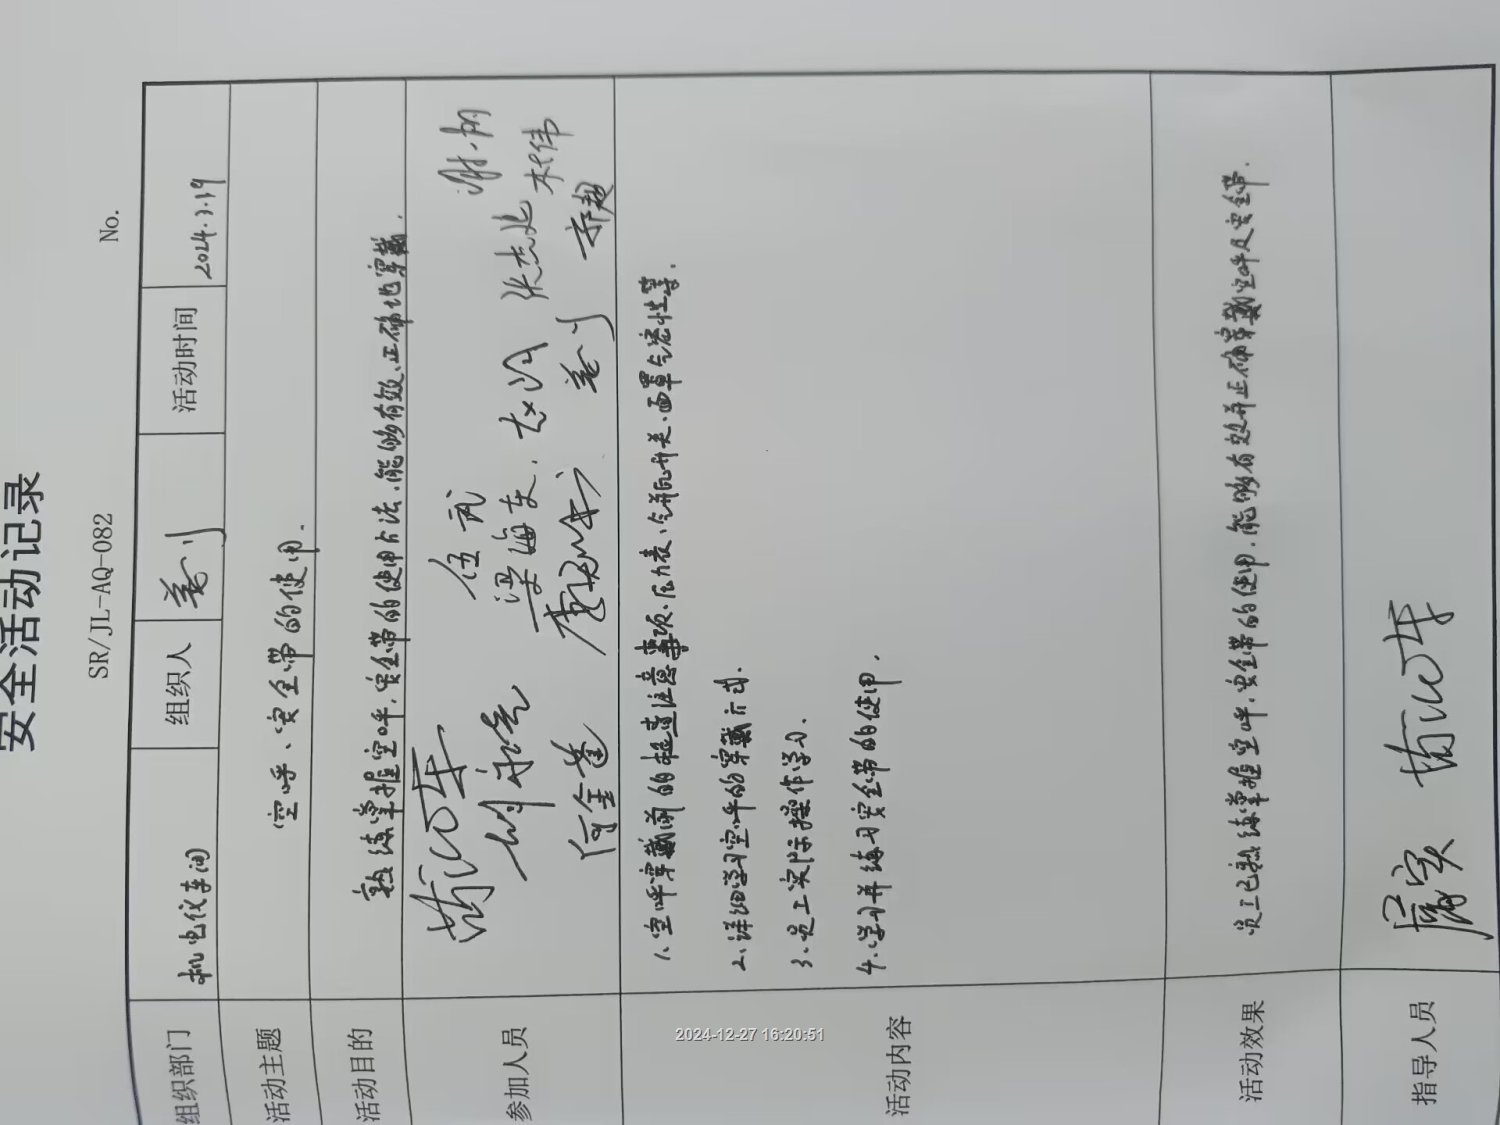 安全活动记录
SR/JL-AQ-082
No.
组织部门 机电仪车间 组织人 活动时间 2024.3.19
活动主题 空呼、安全带的使用.
活动目的 熟练掌握空呼,安全带的使用方法,能够有效、正确地穿戴.
参加人员
伍武
梁海东
张杰
李超
活动内容
1、空呼穿戴前的检查注意事项、压力表、气瓶开关、面罩气密性等.
2、详细学习空呼的穿戴方式.
3、员工实际操作学习.
4、学习并练习安全带的使用.
活动效果 员工已熟练掌握空呼,安全带的使用,能够有效并正确穿戴空呼及安全带.
指导人员
2024-12-27 16:20:51